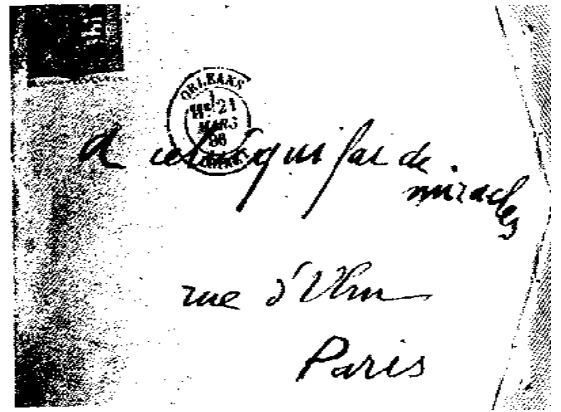 ORLEANS
21
MARS
86
A celui qui fai de
miracles
rue d'Ulm
Paris